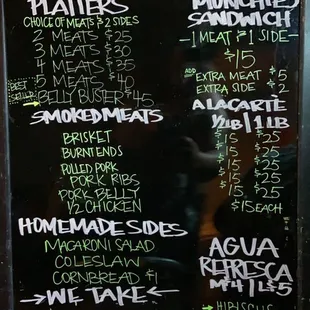 PLATTERS
CHOICE OF MEATS & 2 SIDES
2 MEATS $25
3 MEATS $30
4 MEATS $35
5 MEATS $40
BEST SELLER → BELLY BUSTER $45
SMOKED MEATS
BRISKET
BURNT ENDS
PULLED PORK
PORK RIBS
PORK BELLY
1/2 CHICKEN
HOMEMADE SIDES
MACARONI SALAD
COLESLAW
CORNBREAD $1
→WE TAKE←
MUNCHIES
SANDWICH
1 MEAT & 1 SIDE
$15
ADD
EXTRA MEAT $5
EXTRA SIDE $2
A LA CARTE
1/2 LB | 1 LB
$15 $25
$15 $25
$15 $25
$15 $25
$15 $25
$15 EACH
AGUA
REFRESCA
M $4 | L $5
→ HIBISCUS